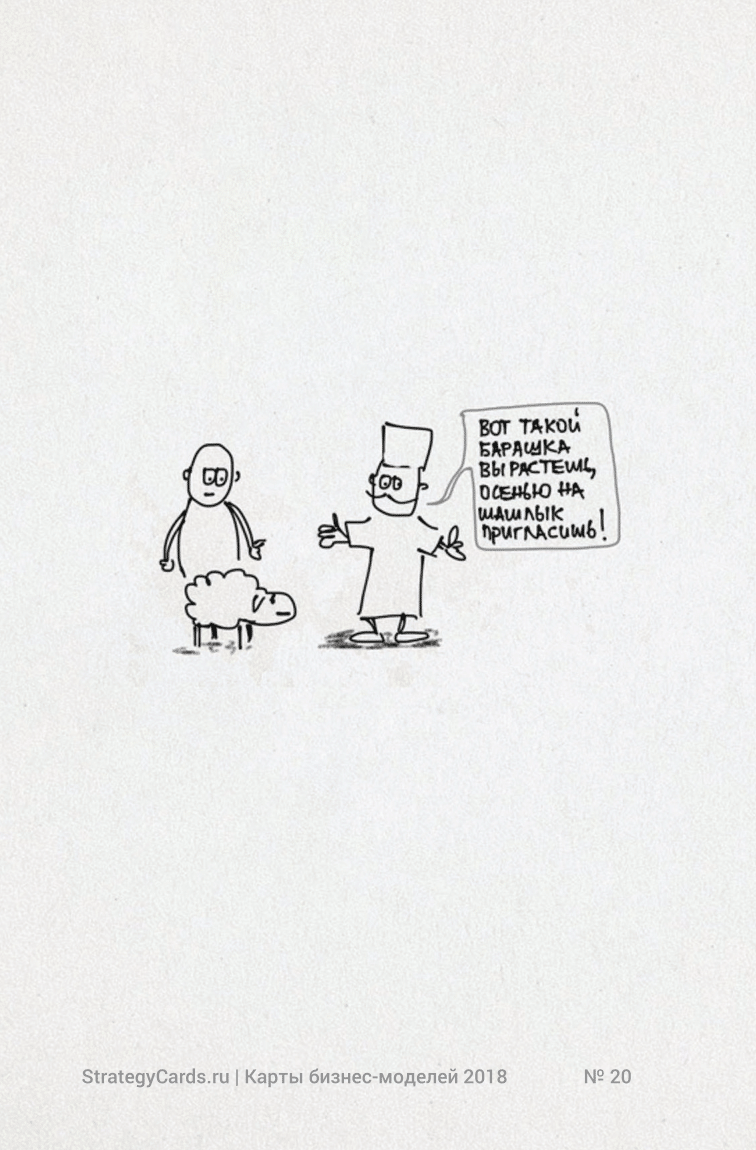 ВОТ ТАКОЙ
БАРАШКА
ВЫРАСТЕШЬ,
ОСЕНЬЮ НА
ШАШЛЫК
ПРИГЛАСИШЬ!
StrategyCards.ru | Карты бизнес-моделей 2018 № 20